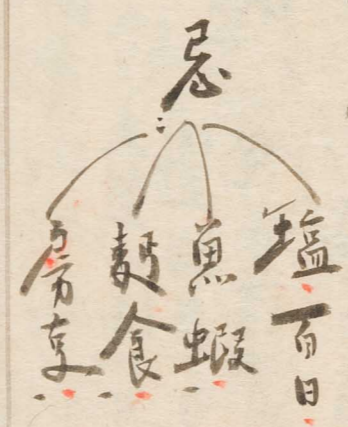 忌
塩百日
魚蝦
麪食
房事